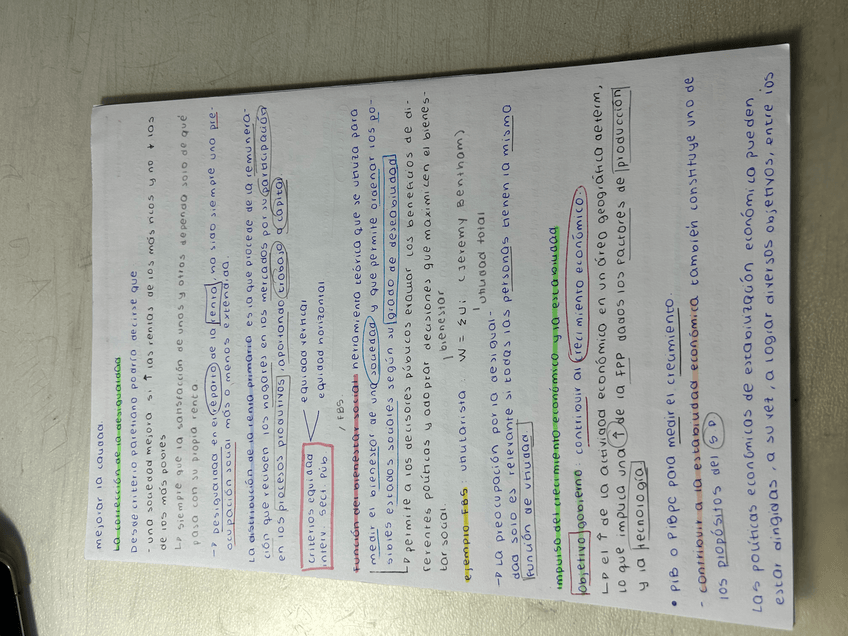 mejorar la caudad.
La corrección de la desigualdad
Desde criterio paretiano podría decirse que
- una sociedad mejora si ↑ las rentas de los más ricos y no ↓ las
de los más pobres
↳ siempre que la satisfacción de unos y otros dependa solo de qué
pasa con su propia renta
→ desigualdad en el reparto de la renta, ha sido siempre una pre-
ocupación social más o menos extendida
La distribución de la renta primaria es la que procede de la remunera-
ción que reciben los hogares en los mercados por su participación
en los procesos produtivos, aportando trabajo o capital
criterios equidad
interv. Sect. Púb
equidad vertical
equidad horizontal
/ FBS
Función del bienestar social: herramienta teórica que se utiliza para
medir el bienestar de una sociedad y que permite ordenar los po-
sibles estados sociales según su grado de deseabilidad
↳ permite a los decisores públicos evaluar los beneficios de di-
ferentes políticas y adoptar decisiones que maximicen el bienes-
tar social.
| bienestar
ejemplo FBS: utilitarista: W = Σ Ui (Jeremy Bentham)
| utilidad total
→ La preocupación por la desigual-
dad solo es relevante si todas las personas tienen la misma
función de utilidad
Impulso del crecimiento económico y la estabilidad
Objetivo gobierno: contribuir al crecimiento económico.
↳ el ↑ de la actividad económico en un área geográfica determ,
lo que implica una ↑ de la FPP dados los factores de producción
y la tecnología
• PIB o PIBPC para medir el crecimiento.
- contribuir a la estabilidad económica también constituye uno de
los propósitos del SP
Las políticas económicas de estabilización económica pueden
estar dirigidas, a su vez, a lograr diversos objetivos, entre los